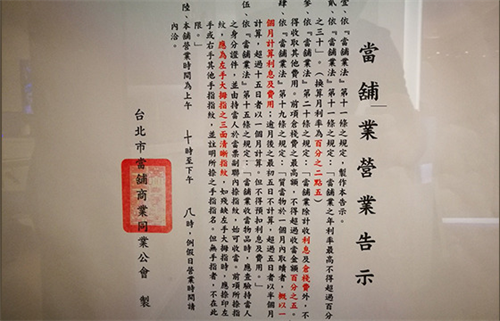 當舖業營業告示
壹、依『當舖業法』第十一條之規定,製作本告示。
貳、依『當舖業法』第十一條之規定:「當舖業之年利率最高不得超過百分
之三十」。(換算月利率為百分之二點五)
參、依『當舖業法』第二十條之規定:「當舖業除計收利息及倉棧費外,不
得收取其他費用。前項倉棧費之最高額,不得超過收當金額百分之五。
肆、依『當舖業法』第十九條之規定:「質當物於一個月內取贖者,概以一
個月計算利息及費用;逾月後之最初五日不計算,超過五日者以半個月
計算,超過十五日者以一個月計算。但不得預扣利息及費用。」
伍、依『當舖業法』第十五條之規定:「當舖業收當物品時,應查驗持當人
之身分證件,並由持當人於當票副聯內捺指紋,始可收當。前項所捺指
紋,應為左手大拇指之三面清晰指紋,如殘缺左手大拇指時,應捺印左
手或右手其他手指指紋,並註明所捺之手指指名,但無手指者,不在此
限。」
陸、本舖營業時間為上午 十時至下午 八時,例假日營業時間請
內洽。
台北市當舖商業同業公會 製